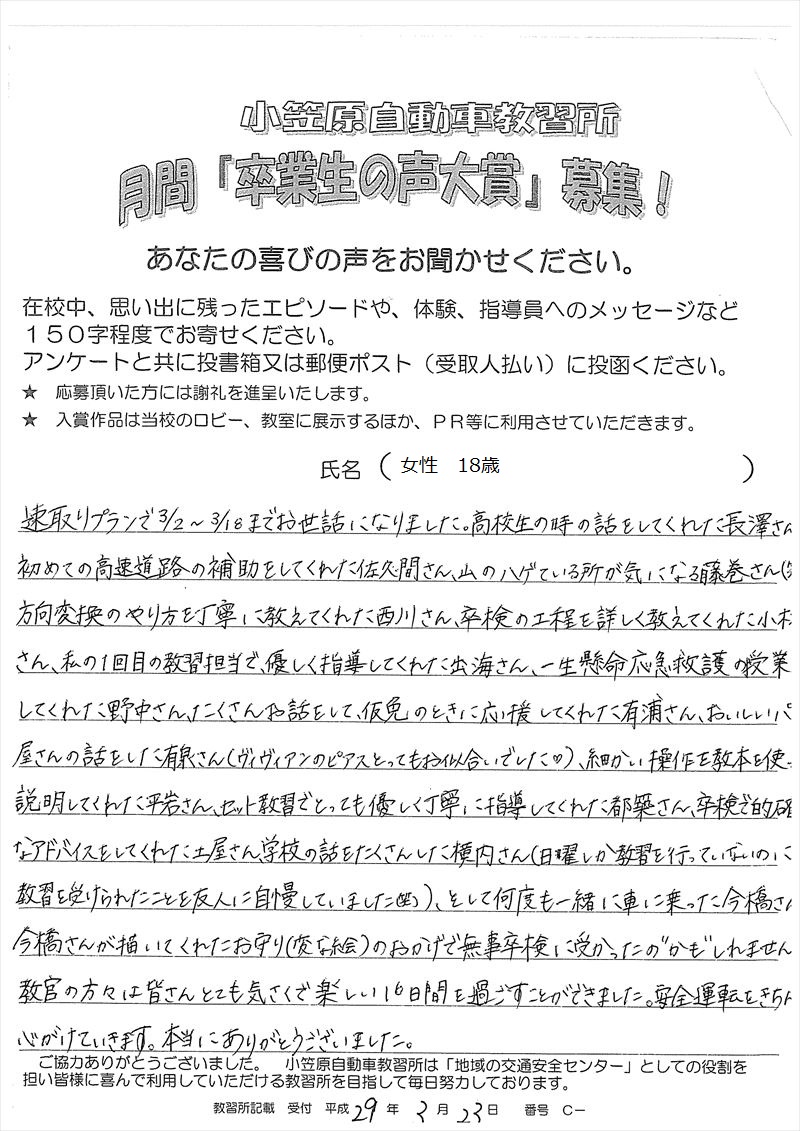 小笠原自動車教習所
月間『卒業生の声大賞』募集！
あなたの喜びの声をお聞かせください。
在校中、思い出に残ったエピソードや、体験、指導員へのメッセージなど
１５０字程度でお寄せください。
アンケートと共に投書箱又は郵便ポスト（受取人払い）に投函ください。
★ 応募頂いた方には謝礼を進呈いたします。
★ 入賞作品は当校のロビー、教室に展示するほか、ＰＲ等に利用させていただきます。
氏名（女性 18歳）
速取りプランで3/2～3/18までお世話になりました。高校生の時の話をしてくれた長澤さん
初めての高速道路の補助をしてくれた佐久間さん、山のハゲている所が気になる藤巻さん(笑
方向変換のやり方を丁寧に教えてくれた西川さん、卒検の工程を詳しく教えてくれた小木
さん、私の1回目の教習担当で、優しく指導してくれた出海さん、一生懸命応急救護の授業
してくれた野中さん、たくさんお話をして、仮免のときに応援してくれた有浦さん、おいしいパ
屋さんの話をした有泉さん(ヴィヴィアンのピアスとってもお似合いでした♡)、細かい操作を教本を使
説明してくれた平岩さん、セット教習でとっても優しく丁寧に指導してくれた都築さん、卒検で的確
なアドバイスをしてくれた土屋さん、学校の話をたくさんした梗内さん(日曜しか教習を行っていないのに
教習を受けられたことを友人に自慢していました(笑))、そして何度も一緒に車に乗った今橋さん
今橋さんが描いてくれたお守り(変な絵)のおかげで無事卒検に受かったの"かも"しれません
教官の方々は皆さんとても気さくで楽しい16日間を過ごすことができました。安全運転をきちん
心がけていきます。本当にありがとうございました。
ご協力ありがとうございました。 小笠原自動車教習所は「地域の交通安全センター」としての役割を
担い皆様に喜んで利用していただける教習所を目指して毎日努力しております。
教習所記載 受付 平成 29 年 3 月 23 日 番号 Ｃ－